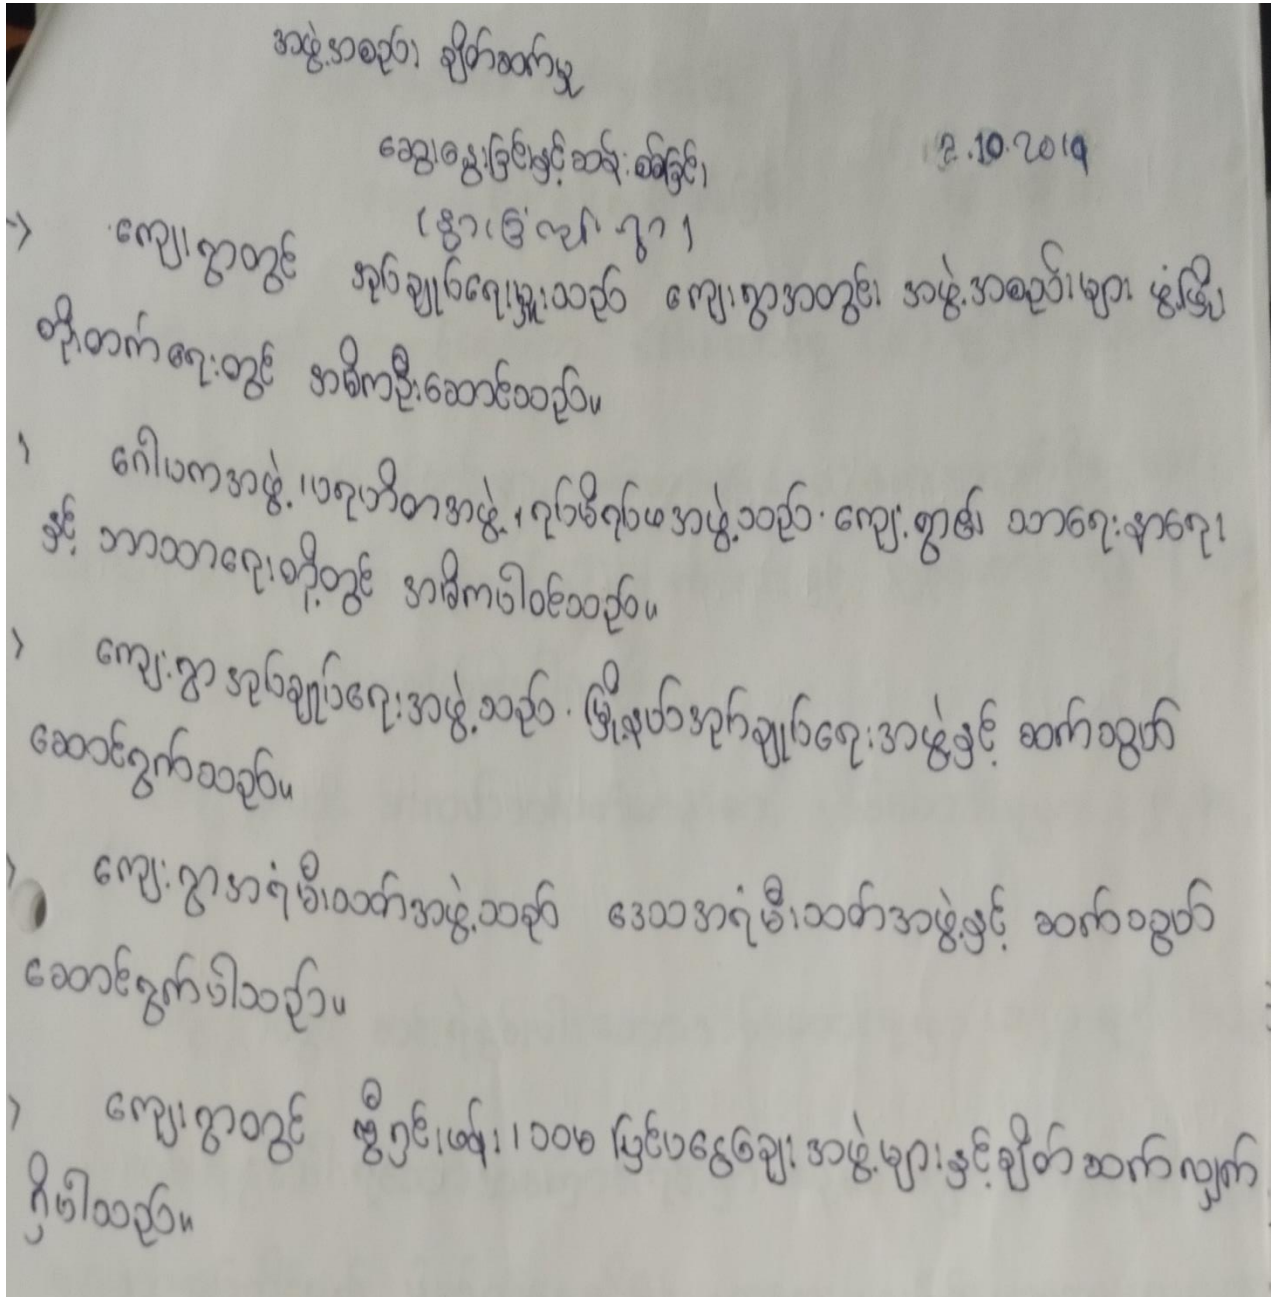 အဖွဲ့အစည်း ချိတ်ဆက်မှု
ဆွေးနွေးခြင်းနှင့်ဆန်းစစ်ခြင်း 2.10.2019
ကျေးရွာတွင် အုပ်ချုပ်ရေးမှူးသည် ကျေးရွာအတွင်း အဖွဲ့အစည်းများ ဖွံ့ဖြိုး
တိုးတက်ရေးတွင် အဓိကဦးဆောင်သည်။
ဂေါပကအဖွဲ့၊ ပရဟိတအဖွဲ့၊ ရပ်မိရပ်ဖအဖွဲ့သည် ကျေးရွာ၏ သာရေးနာရေး
နှင့် ဘာသာရေးတို့တွင် အဓိကပါဝင်သည်။
ကျေးရွာအုပ်ချုပ်ရေးအဖွဲ့သည် မြို့နယ်အုပ်ချုပ်ရေးအဖွဲ့နှင့် ဆက်သွယ်
ဆောင်ရွက်သည်။
ကျေးရွာအရံမီးသတ်အဖွဲ့သည် ဒေသအရံမီးသတ်အဖွဲ့နှင့် ဆက်သွယ်
ဆောင်ရွက်ပါသည်။
ကျေးရွာတွင် ပြင်ပငွေချေး အဖွဲ့များနှင့်ချိတ်ဆက်လျှက်
ရှိပါသည်။